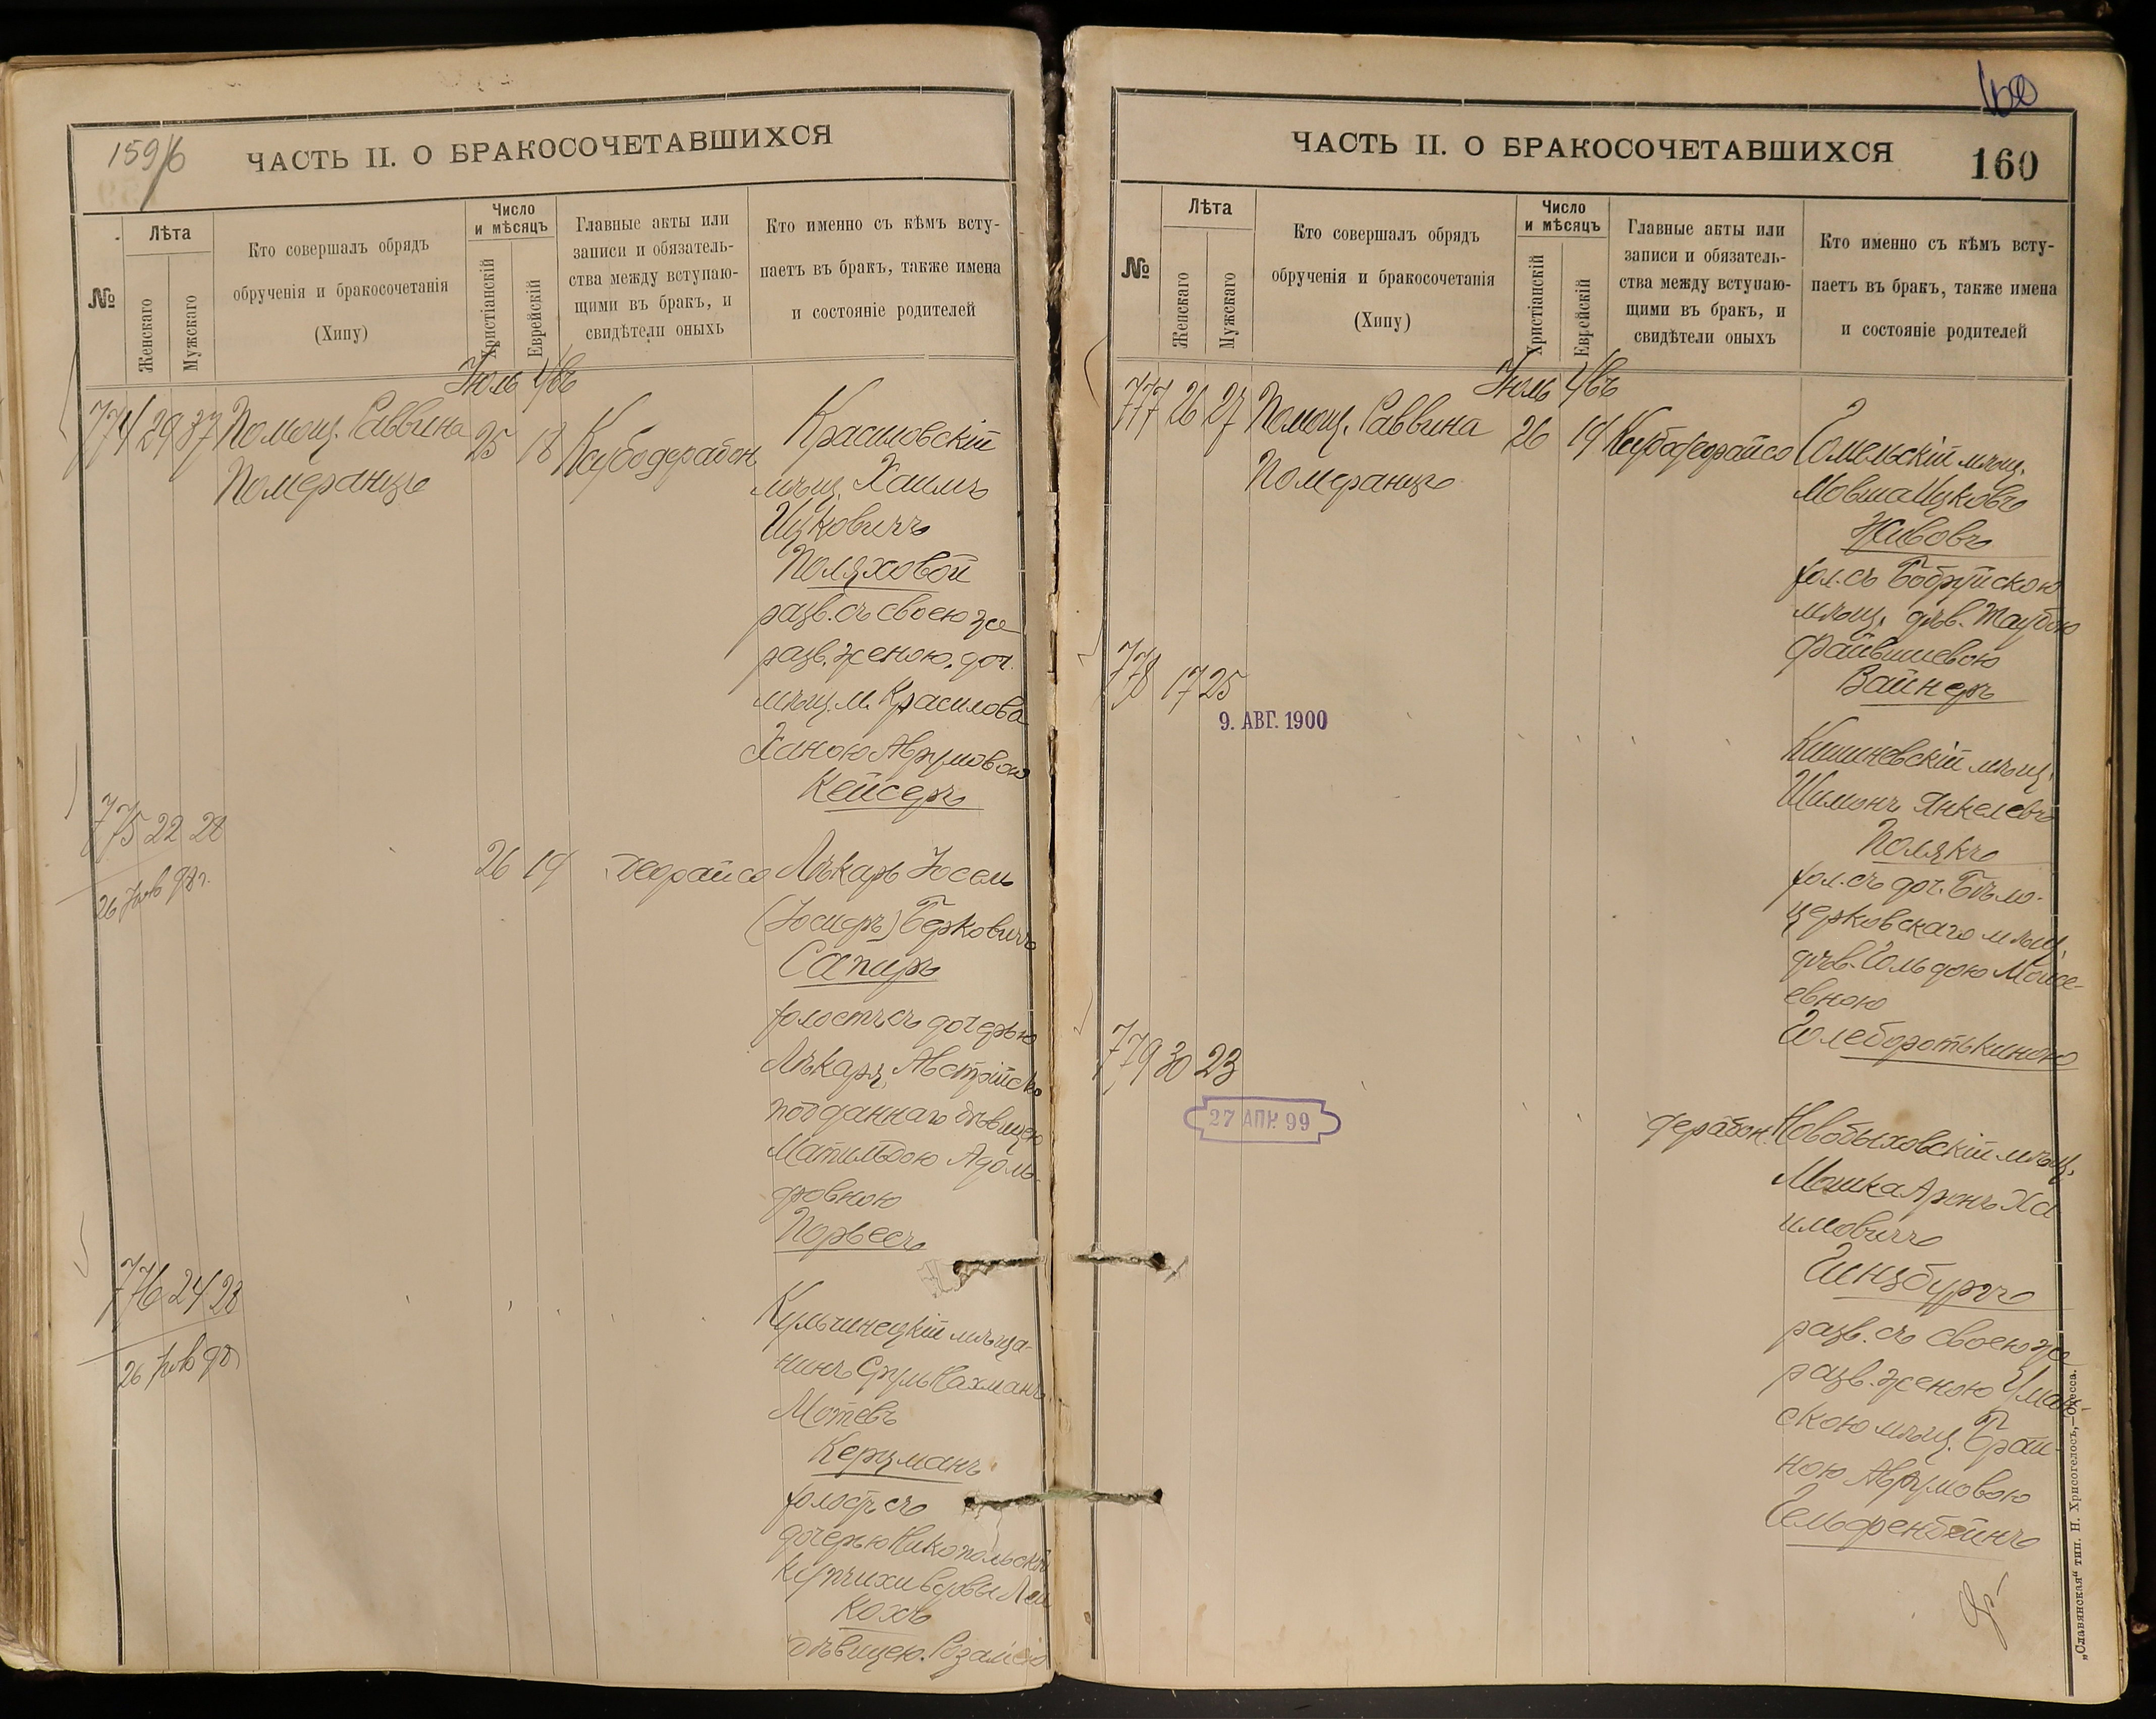 159/6
ЧАСТЬ II. О БРАКОСОЧЕТАВШИХСЯ
№
Лѣта
Женскаго
Мужскаго
Кто совершалъ обрядъ
обрученія и бракосочетанія
(Хипу)
Число
и мѣсяцъ
Христіанскій
Еврейскій
Главные акты или
записи и обязатель-
ства между вступаю-
щими въ бракъ, и
свидѣтели оныхъ
Кто именно съ кѣмъ всту-
паетъ въ бракъ, также имена
и состояніе родителей
Іюль
774 29 37 Помощ. Раввина 25 18
Померанцъ
Красиловскій
мѣщ. Хаимъ
Ицковичъ
Поляховой
разв. съ своею же
разв. женою, доч.
мѣщ. м. Красилова
Ханою Аврумовою
Кейсеръ
775 22 28
26 19
Лѣкарь Іосель
(Іосифъ) Берковичъ
Сапиръ
холостъ, съ дочерью
Лѣкаря, Австрійско
подданнаго дѣвицею
Матильдою Адоль-
фовною
Порвесъ
776 24 28
Кульчинецкій мѣща-
нинъ Сруль Нахманъ
Мотевъ
Керцманъ
холостъ съ
дочерью Никопольской
купчихи вдовы Леи
Кохъ
дѣвицею Розаліею
160
ЧАСТЬ II. О БРАКОСОЧЕТАВШИХСЯ
160
№
Лѣта
Женскаго
Мужскаго
Кто совершалъ обрядъ
обрученія и бракосочетанія
(Хипу)
Число
и мѣсяцъ
Христіанскій
Еврейскій
Главные акты или
записи и обязатель-
ства между вступаю-
щими въ бракъ, и
свидѣтели оныхъ
Кто именно съ кѣмъ всту-
паетъ въ бракъ, также имена
и состояніе родителей
Іюль
777 26 27 Помощ. Раввина 26 19
Померанцъ
Гомельскій мѣщ.
Мовша Ицковъ
Живовъ
хол. съ Бобруйскою
мѣщ. дѣв. Таубою
Файвишевою
Вайнеръ
778 17 25
9. АВГ. 1900
Кишиневскій мѣщ.
Шимонъ Янкелевъ
Полякъ
хол. съ доч. Бѣло-
церковскаго мѣщ.
дѣв. Гольдою Мойсе-
евною
Голеборотькиною
779 30 23
27 АПР. 99
Новобыховскій мѣщ.
Мошка Аронъ Ха
имовичъ
Гинзбургъ
разв. съ своею же
разв. женою Уман-
скою мѣщ. Брай-
ною Аврумовою
Гельфенбейнъ
„Славянская“ тип. Н. Хрисогелосъ,—Одесса.